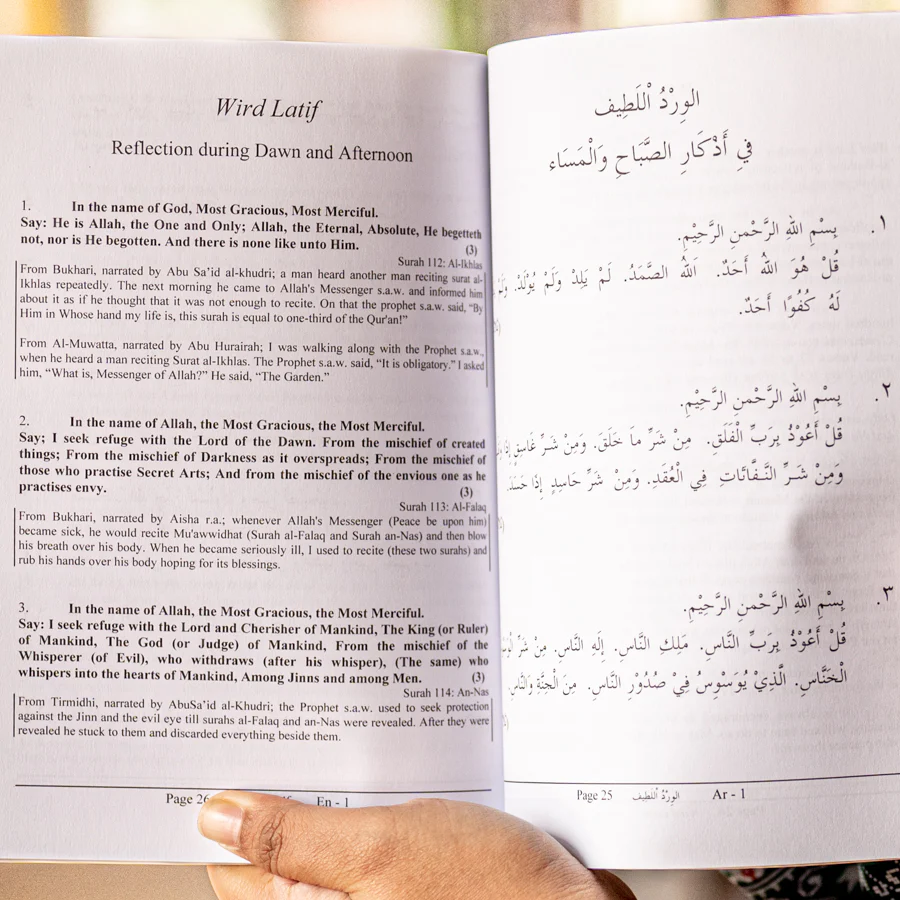 Wird Latif
Reflection during Dawn and Afternoon
1. In the name of God, Most Gracious, Most Merciful.
Say: He is Allah, the One and Only; Allah, the Eternal, Absolute, He begetteth
not, nor is He begotten. And there is none like unto Him.
(3)
Surah 112: Al-Ikhlas
From Bukhari, narrated by Abu Sa’id al-khudri; a man heard another man reciting surat al-
Ikhlas repeatedly. The next morning he came to Allah's Messenger s.a.w. and informed him
about it as if he thought that it was not enough to recite. On that the prophet s.a.w. said, “By
Him in Whose hand my life is, this surah is equal to one-third of the Qur'an!”
From Al-Muwatta, narrated by Abu Hurairah; I was walking along with the Prophet s.a.w.,
when he heard a man reciting Surat al-Ikhlas. The Prophet s.a.w. said, “It is obligatory.” I asked
him, “What is, Messenger of Allah?” He said, “The Garden.”
2. In the name of Allah, the Most Gracious, the Most Merciful.
Say; I seek refuge with the Lord of the Dawn. From the mischief of created
things; From the mischief of Darkness as it overspreads; From the mischief of
those who practise Secret Arts; And from the mischief of the envious one as he
practises envy.
(3)
Surah 113: Al-Falaq
From Bukhari, narrated by Aisha r.a.; whenever Allah's Messenger (Peace be upon him)
became sick, he would recite Mu'awwidhat (Surah al-Falaq and Surah an-Nas) and then blow
his breath over his body. When he became seriously ill, I used to recite (these two surahs) and
rub his hands over his body hoping for its blessings.
3. In the name of Allah, the Most Gracious, the Most Merciful.
Say: I seek refuge with the Lord and Cherisher of Mankind, The King (or Ruler)
of Mankind, The God (or Judge) of Mankind, From the mischief of the
Whisperer (of Evil), who withdraws (after his whisper), (The same) who
whispers into the hearts of Mankind, Among Jinns and among Men. (3)
Surah 114: An-Nas
From Tirmidhi, narrated by AbuSa’id al-Khudri; the Prophet s.a.w. used to seek protection
against the Jinn and the evil eye till surahs al-Falaq and an-Nas were revealed. After they were
revealed he stuck to them and discarded everything beside them.
Page 26 En - 1
الوِرْدُ اْللَطِيف
فِي أَذْكَارِ الصَّبَاحِ وَالْمَسَاء
١. بِسْمِ اللهِ الرَّحْمنِ الرَّحِيْمِ.
قُلْ هُوَ اللهُ أَحَدٌ. اَللهُ الصَّمَدُ. لَمْ يَلِدْ وَلَمْ يُوْلَدْ. وَلَمْ
لَهُ كُفُوًا أَحَدٌ.
٢. بِسْمِ اللهِ الرَّحْمنِ الرَّحِيْمِ.
قُلْ أَعُوْذُ بِرَبِّ الْفَلَقِ. مِنْ شَرِّ مَا خَلَقَ. وَمِنْ شَرِّ غَاسِقٍ إِذَا
وَمِنْ شَرِّ النَّفَّاثَاتِ فِي الْعُقَدِ. وَمِنْ شَرِّ حَاسِدٍ إِذَا حَسَدَ.
٣. بِسْمِ اللهِ الرَّحْمنِ الرَّحِيْمِ.
قُلْ أَعُوْذُ بِرَبِّ النَّاسِ. مَلِكِ النَّاسِ. إِلَهِ النَّاسِ. مِنْ شَرِّ
الْخَنَّاسِ. الَّذِيْ يُوَسْوِسُ فِيْ صُدُوْرِ النَّاسِ. مِنَ الْجِنَّةِ وَالنَّاسِ.
Page 25 الوِرْدُ اْللَطِيف Ar - 1